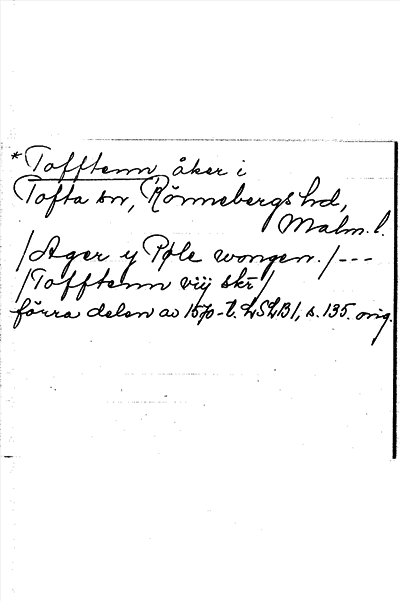 *Tofftenn, åker i
Tofta sn, Rönnebergs hd,
Malm. l.
/Ager y Pøle wongen./---
/Tofftenn viij skr/
förra delen av 1570-t. LSLB1, s. 135. orig.